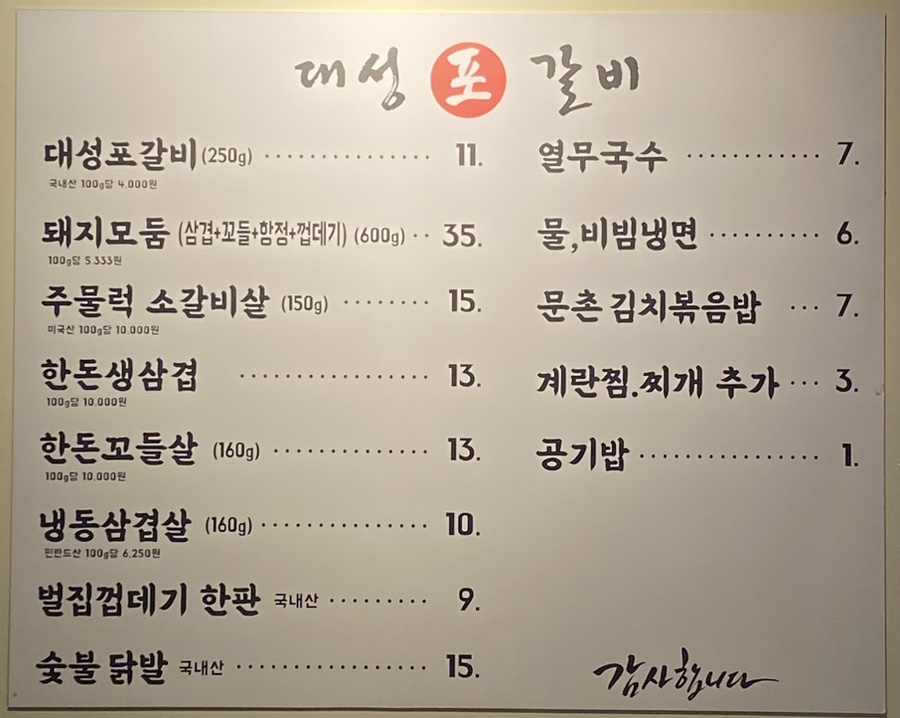 대성 포 갈비
대성포갈비 (250g) ················ 11.
국내산 100g당 4,000원
돼지모둠 (삼겹+꼬들+항점+껍데기) (600g) ·· 35.
100g당 5.333원
주물럭 소갈비살 (150g) ········ 15.
미국산 100g당 10.000원
한돈생삼겹 ················· 13.
100g당 10.000원
한돈꼬들살 (160g) ·············· 13.
100g당 10.000원
냉동삼겹살 (160g) ··············· 10.
핀란드산 100g당 6.250원
벌집껍데기 한판 국내산 ········· 9.
숯불 닭발 국내산 ················· 15.
열무국수 ············ 7.
물,비빔냉면 ·········· 6.
문촌 김치볶음밥 ··· 7.
계란찜.찌개 추가 ··· 3.
공기밥 ················ 1.
감사합니다